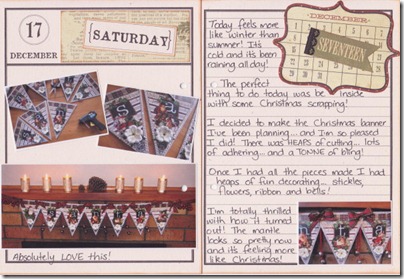 17
DECEMBER
SATURDAY
Absolutely LOVE this!
DECEMBER
SEVENTEEN
Today feels more
like winter than
summer! It's
cold and it's been
raining all day!
The perfect
thing to do today was be inside
with some Christmas scrapping!
I decided to make the Christmas banner
I've been planning... and I'm so pleased
I did! There was HEAPS of cutting... lots
of adhering... and a TONNE of bling!
Once I had all the pieces made I had
heaps of fun decorating... stickles,
flowers, ribbon and bells!
I'm totally thrilled
with how it turned
out! The mantle
looks so pretty now
and it's feeling more
like Christmas!